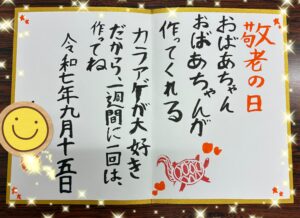 敬老の日
おばあちゃん
おばあちゃんが
作ってくれる
カラアゲが大好き
だから、一週間に一回は、
作ってね
令和七年九月十五日